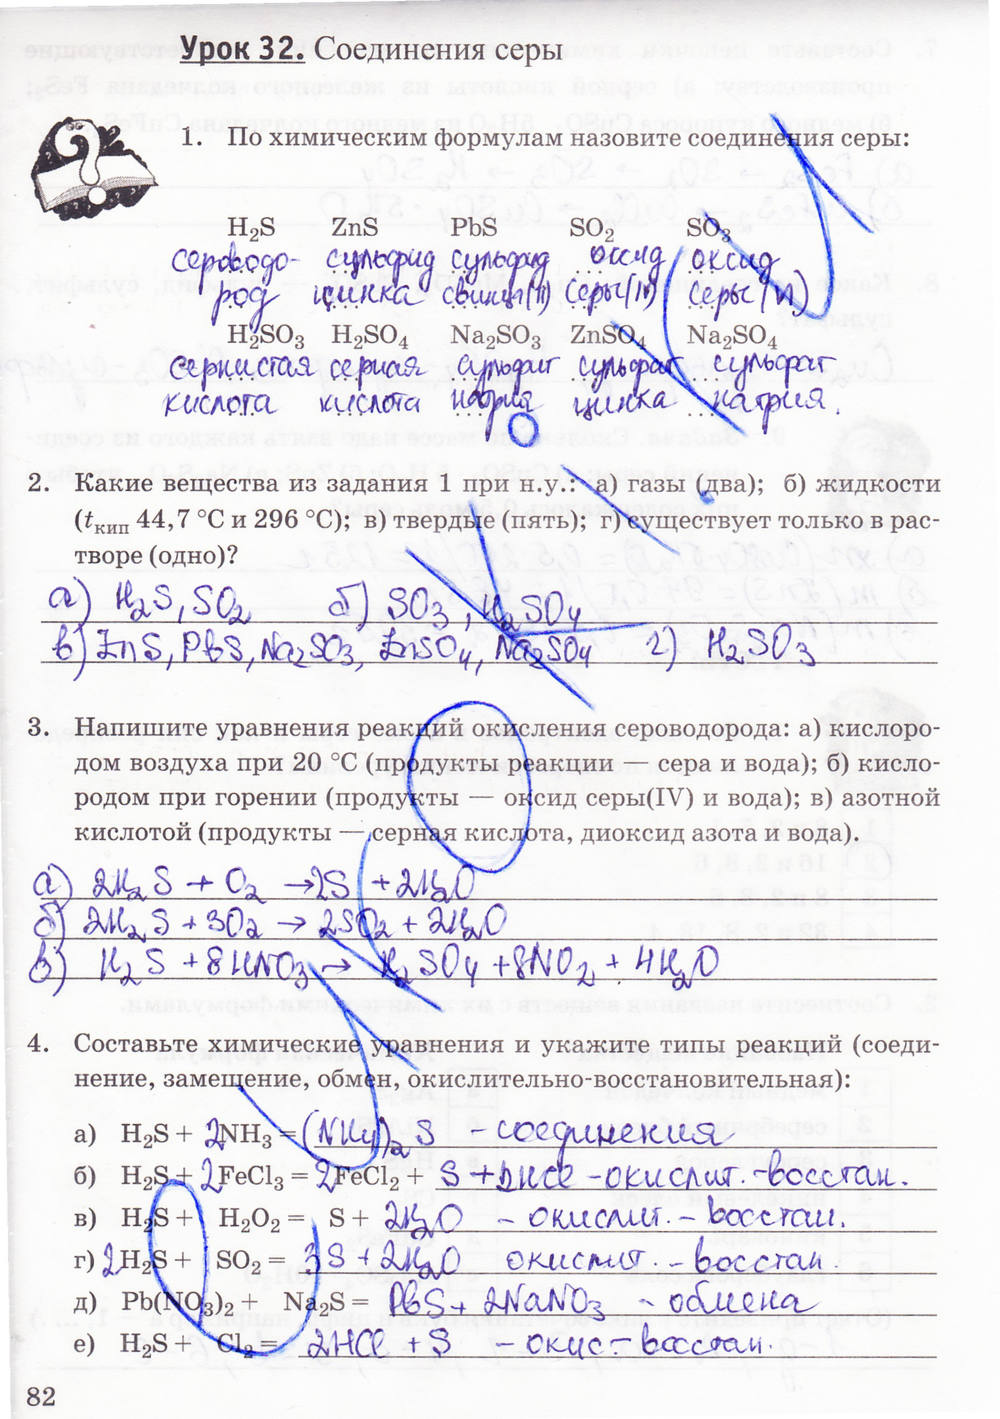 Урок 32. Соединения серы
1. По химическим формулам назовите соединения серы:
H₂S ZnS PbS SO₂ SO₃
сероводо- сульфид сульфид оксид оксид
род цинка свинца(II) серы(IV) серы(VI)
H₂SO₃ H₂SO₄ Na₂SO₃ ZnSO₄ Na₂SO₄
сернистая серная сульфит сульфат сульфат
кислота кислота натрия цинка натрия.
2. Какие вещества из задания 1 при н.у.: а) газы (два); б) жидкости
(tкип 44,7 °С и 296 °С); в) твердые (пять); г) существует только в рас-
творе (одно)?
а) H₂S, SO₂ б) SO₃, H₂SO₄
в) ZnS, PbS, Na₂SO₃, ZnSO₄, Na₂SO₄ г) H₂SO₃
3. Напишите уравнения реакций окисления сероводорода: а) кислоро-
дом воздуха при 20 °С (продукты реакции — сера и вода); б) кисло-
родом при горении (продукты — оксид серы(IV) и вода); в) азотной
кислотой (продукты — серная кислота, диоксид азота и вода).
а) 2H₂S + O₂ → 2S + 2H₂O
б) 2H₂S + 3O₂ → 2SO₂ + 2H₂O
в) H₂S + 8HNO₃ → H₂SO₄ + 8NO₂ + 4H₂O
4. Составьте химические уравнения и укажите типы реакций (соеди-
нение, замещение, обмен, окислительно-восстановительная):
а) H₂S + 2NH₃ = (NH₄)₂S - соединения
б) H₂S + 2FeCl₃ = 2FeCl₂ + S + 2HCl - окислит - восстан.
в) H₂S + H₂O₂ = S + 2H₂O - окислит. - восстан.
г) 2H₂S + SO₂ = 3S + 2H₂O окислит - восстан
д) Pb(NO₃)₂ + Na₂S = PbS + 2NaNO₃ - обмена
е) H₂S + Cl₂ = 2HCl + S - окис.-восстан.
82